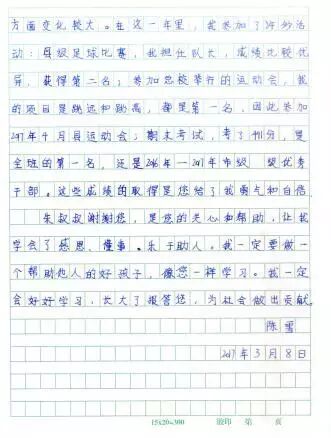 方面变化较大。在这一年里，我参加了许多活
动：县级足球比赛，我担任队长，成绩比较优
异，获得第二名；参加总校举行的运动会，我
的项目是跳远和跳高，都是第一名，因此参加
2017年4月县运动会；期末考试，考了 分，是
全班的第一名，还是2016年—2017年市级 级优秀
干部。这些成绩的取得是您给了我勇气和自信。
朱叔叔谢谢您，是您的关心和帮助，让我
学会了感恩、懂事。乐于助人。我一定要做一
个帮助他人的好孩子，像您一样学习。我一定
会好好学习，长大了报答您，为社会做出贡献。
陈雪
2017年3月8日
15x20=300 第 页